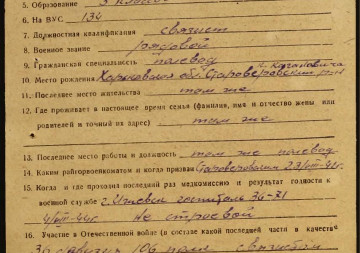 5. Образование 3 класса
6. На ВУС 134
7. Должностная квалификация связист
8. Военное звание рядовой
9. Гражданская специальность полевод
с. Кагановича
10. Место рождения Харьковская обл. Староверовский р-н
11. Последнее место жительства там же
12. Где проживает в настоящее время семья (фамилия, имя и отчество жены или
родителей и точный их адрес) там же
13. Последнее место работы и должность там же полевод
14. Каким райгорвоенкоматом и когда призван Староверовским
15. Когда и где проходил последний раз медкомиссию и результат годности к
военной службе г. госпиталь
Не строевой
16. Участие в Отечественной войне (в составе какой последней части и в качестве
106 полк связистом